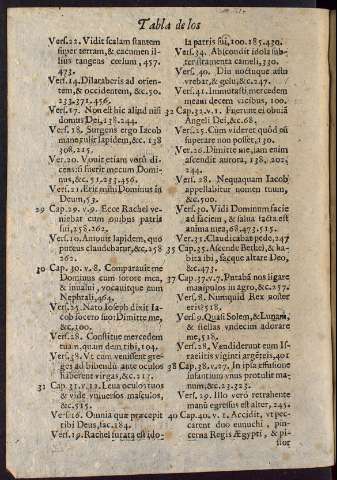 Tabla de los
Vers.22. Vidit scalam stantem
super terram, & cacumen il-
lius tangens cœlum, 457.
473.
Vers.14. Dilataberis ad orien-
tem, & occidentem, &c.50.
233.371.456.
Vers.17. Non est hic aliud nisi
domus Dei, 138.244.
Vers.18. Surgens ergo Iacob
mane tulit lapidem, &c. 138
308.215.
Ver.20. Vouit etiam votũ di-
cens: si fuerit mecum Domi-
nus, &c. 51.233.456.
Vers.21. Erit mihi Dominus in
Deum, 53.
29 Cap.29. v.9. Ecce Rachel ve-
niebat cum ouibus patris
sui, 258.262.
Vers.10. Amouit lapidem, quo
puteus claudebatur, &c. 258
262.
30 Cap. 30. v. 8. Comparauit me
Dominus cum sorore mea,
& inualui, vocauitque eum
Nephtali, 464.
Vers.25. Nato Ioseph dixit Ia-
cob socero suo: Dimitte me,
&c. 100.
Vers. 28. Constitue mercedem
tuam, quam dem tibi, 104.
Vers.38. Vt cum venissent gre-
ges ad bibendũ ante oculos
haberent virgas, &c. 217.
31 Cap.31. v.12. Leua oculos tuos
& vide vniuersos masculos,
&c. 515.
Vers.16. Omnia quæ præcepit
tibi Deus, fac. 184.
Vers.19. Rachel furata est ido-
la patris sui, 100. 285. 430.
Vers.34. Abscondit idola sub-
ter stramenta cameli, 330.
Vers. 40. Die noctuque æstu
vrebar, & gelu, &c. 247.
Vers.41. Immutasti mercedem
meam decem vicibus, 100.
32 Cap.32. v.1. Fuerunt ei obuiã
Angeli Dei, &c. 68.
Vers.25. Cum videret quòd eũ
superare non posset, 130.
Vers.26. Dimitte me, iam enim
ascendit aurora, 138, 202,
244.
Vers. 28. Nequaquam Iacob
appellabitur nomen tuum,
&c. 500.
Vers.30. Vidi Dominum facie
ad faciem, & salua facta est
anima mea, 68.473.515.
Ver.31. Claudicabat pede, 247
35 Cap.35. Ascende Bethel, & ha-
bita ibi, facque altare Deo,
&c. 473.
37 Cap.37. v.7. Putabã nos ligare
manipulos in agro, &c. 257.
Vers.8. Numquid Rex noster
eris? 518.
Vers.9. Quasi Solem, & Lunam,
& stellas vndecim adorare
me, 518.
Vers.28. Vendiderunt eum Is-
raelitis viginti argẽteis, 401
38 Cap.38. v.27. In ipsa effusione
infantium vnus protulit ma-
num, &c. 23.323.
Vers. 29. Illo verò retrahente
manũ egressus est alter, 245.
40 Cap.40. v. 1. Accidit, vt pec-
carent duo eunuchi, pin-
cerna Regis Ægypti, & pi-
stor